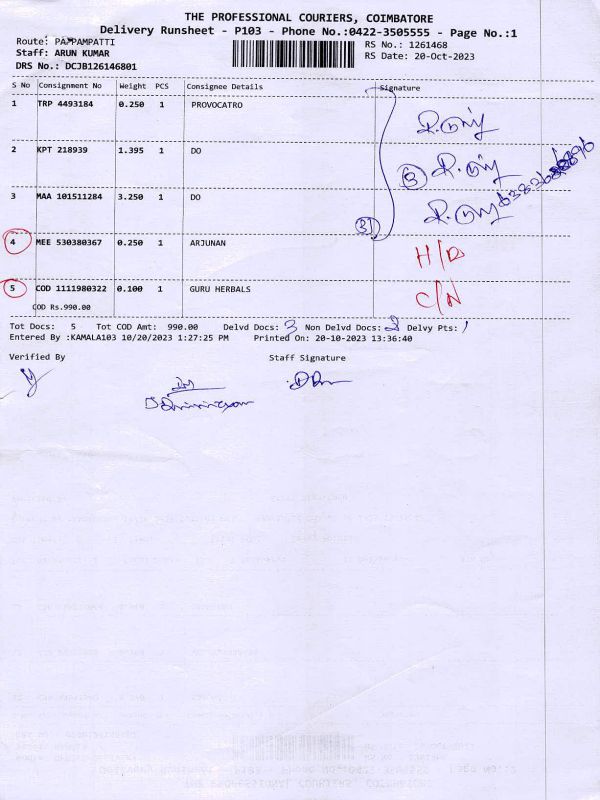 THE PROFESSIONAL COURIERS, COIMBATORE
Delivery Runsheet - P103 - Phone No.:0422-3505555 - Page No.:1
Route: PAPPAMPATTI
RS No.: 1261468
Staff: ARUN KUMAR
RS Date: 20-Oct-2023
DRS No.: DCJB126146801
S No Consignment No Weight PCS Consignee Details Signature
1 TRP 4493184 0.250 1 PROVOCATRO
2 KPT 218939 1.395 1 DO
3 MAA 101511284 3.250 1 DO
3
4 MEE 530380367 0.250 1 ARJUNAN H/D
5 COD 1111980322 0.100 1 GURU HERBALS C/N
COD Rs.990.00
Tot Docs: 5 Tot COD Amt: 990.00 Delvd Docs: 3 Non Delvd Docs: 2 Delvy Pts: 1
Entered By :KAMALA103 10/20/2023 1:27:25 PM Printed On: 20-10-2023 13:36:40
Verified By Staff Signature